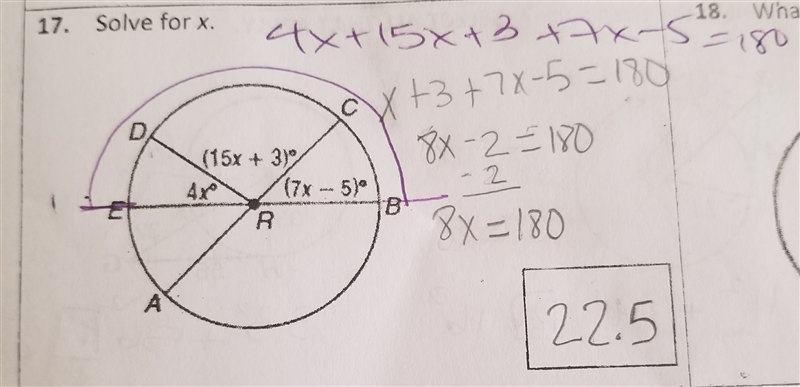 17. Solve for x.
18. Wha
4x+15x+3 +7x-5=180
x+3+7x-5=180
8x-2=180
-2
8x=180
22.5
D
C
(15x + 3)°
4x°
(7x - 5)°
E
R
B
A